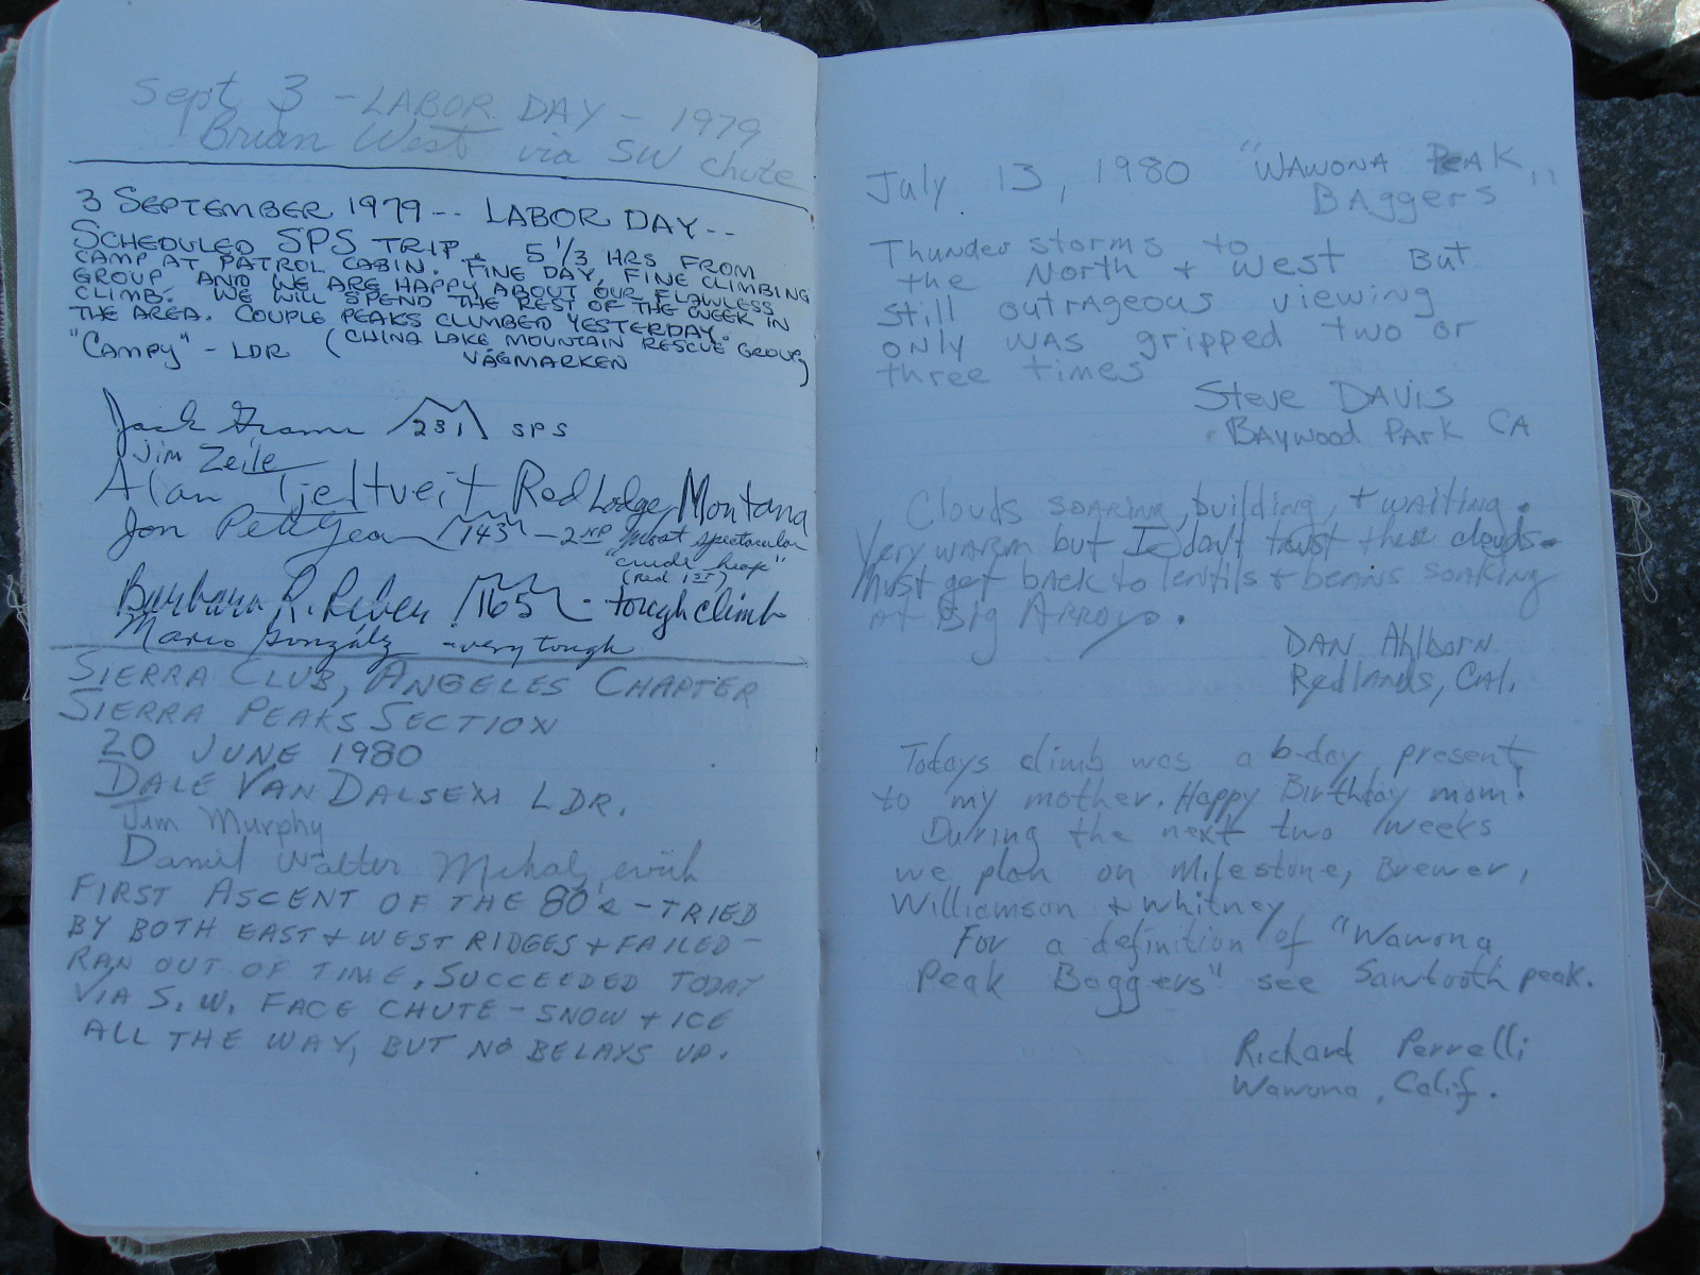 Sept 3 - LABOR DAY - 1979
Brian West via SW chute
3 SEPTEMBER 1979 -- LABOR DAY --
SCHEDULED SPS TRIP. 5 1/3 HRS FROM
CAMP AT PATROL CABIN. FINE DAY, FINE CLIMBING
GROUP AND WE ARE HAPPY ABOUT OUR FLAWLESS
CLIMB. WE WILL SPEND THE REST OF THE WEEK IN
THE AREA. COUPLE PEAKS CLIMBED YESTERDAY.
"CAMPY" - LDR (CHINA LAKE MOUNTAIN RESCUE GROUP,
VÄGMARKEN)
Jack 231 SPS
Jim Zeile
Alan Tjeltveit Red Lodge, Montana
Jon Petitjean 143 - 2ND most spectacular
"crude heap"
(Red 1ST)
Barbara R. Reber 165 - tough climb
Mario González - very tough
SIERRA CLUB, ANGELES CHAPTER
SIERRA PEAKS SECTION
20 JUNE 1980
DALE VAN DALSEM LDR.
Jim Murphy
Daniel Walter
FIRST ASCENT OF THE 80s - TRIED
BY BOTH EAST + WEST RIDGES + FAILED -
RAN OUT OF TIME. SUCCEEDED TODAY
VIA S.W. FACE CHUTE - SNOW + ICE
ALL THE WAY, BUT NO BELAYS UP.
July 13, 1980 "WAWONA PEAK
BAggers"
Thunder storms to
the North + West But
still outrageous viewing
only was gripped two or
three times
Steve DAVIS
BAywood PArk CA
Clouds soaring, building, + waiting.
Very warm but I don't trust these clouds.
Must get back to lentils + beans soaking
at Big Arroyo.
DAN Ahlborn
Redlands, CAl.
Todays climb was a b-day present
to my mother. Happy Birthday mom!
During the next two weeks
we plan on Milestone, Brewer,
Williamson + Whitney
For a definition of "Wawona
Peak Baggers" see Sawtooth peak.
Richard Perrelli
Wawona, Calif.